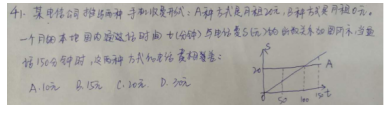 41. 某电信公司推出两种手机收费方式：A种方式是月租20元，B种方式是月租0元。
一个月的本地网内通话时间t(分钟)与电话费S(元)的函数关系如图所示，当通
话150分钟时，这两种方式的电话费相差是：
A.10元 B.15元 C.20元 D.30元
S
A
20
50 100 150 t